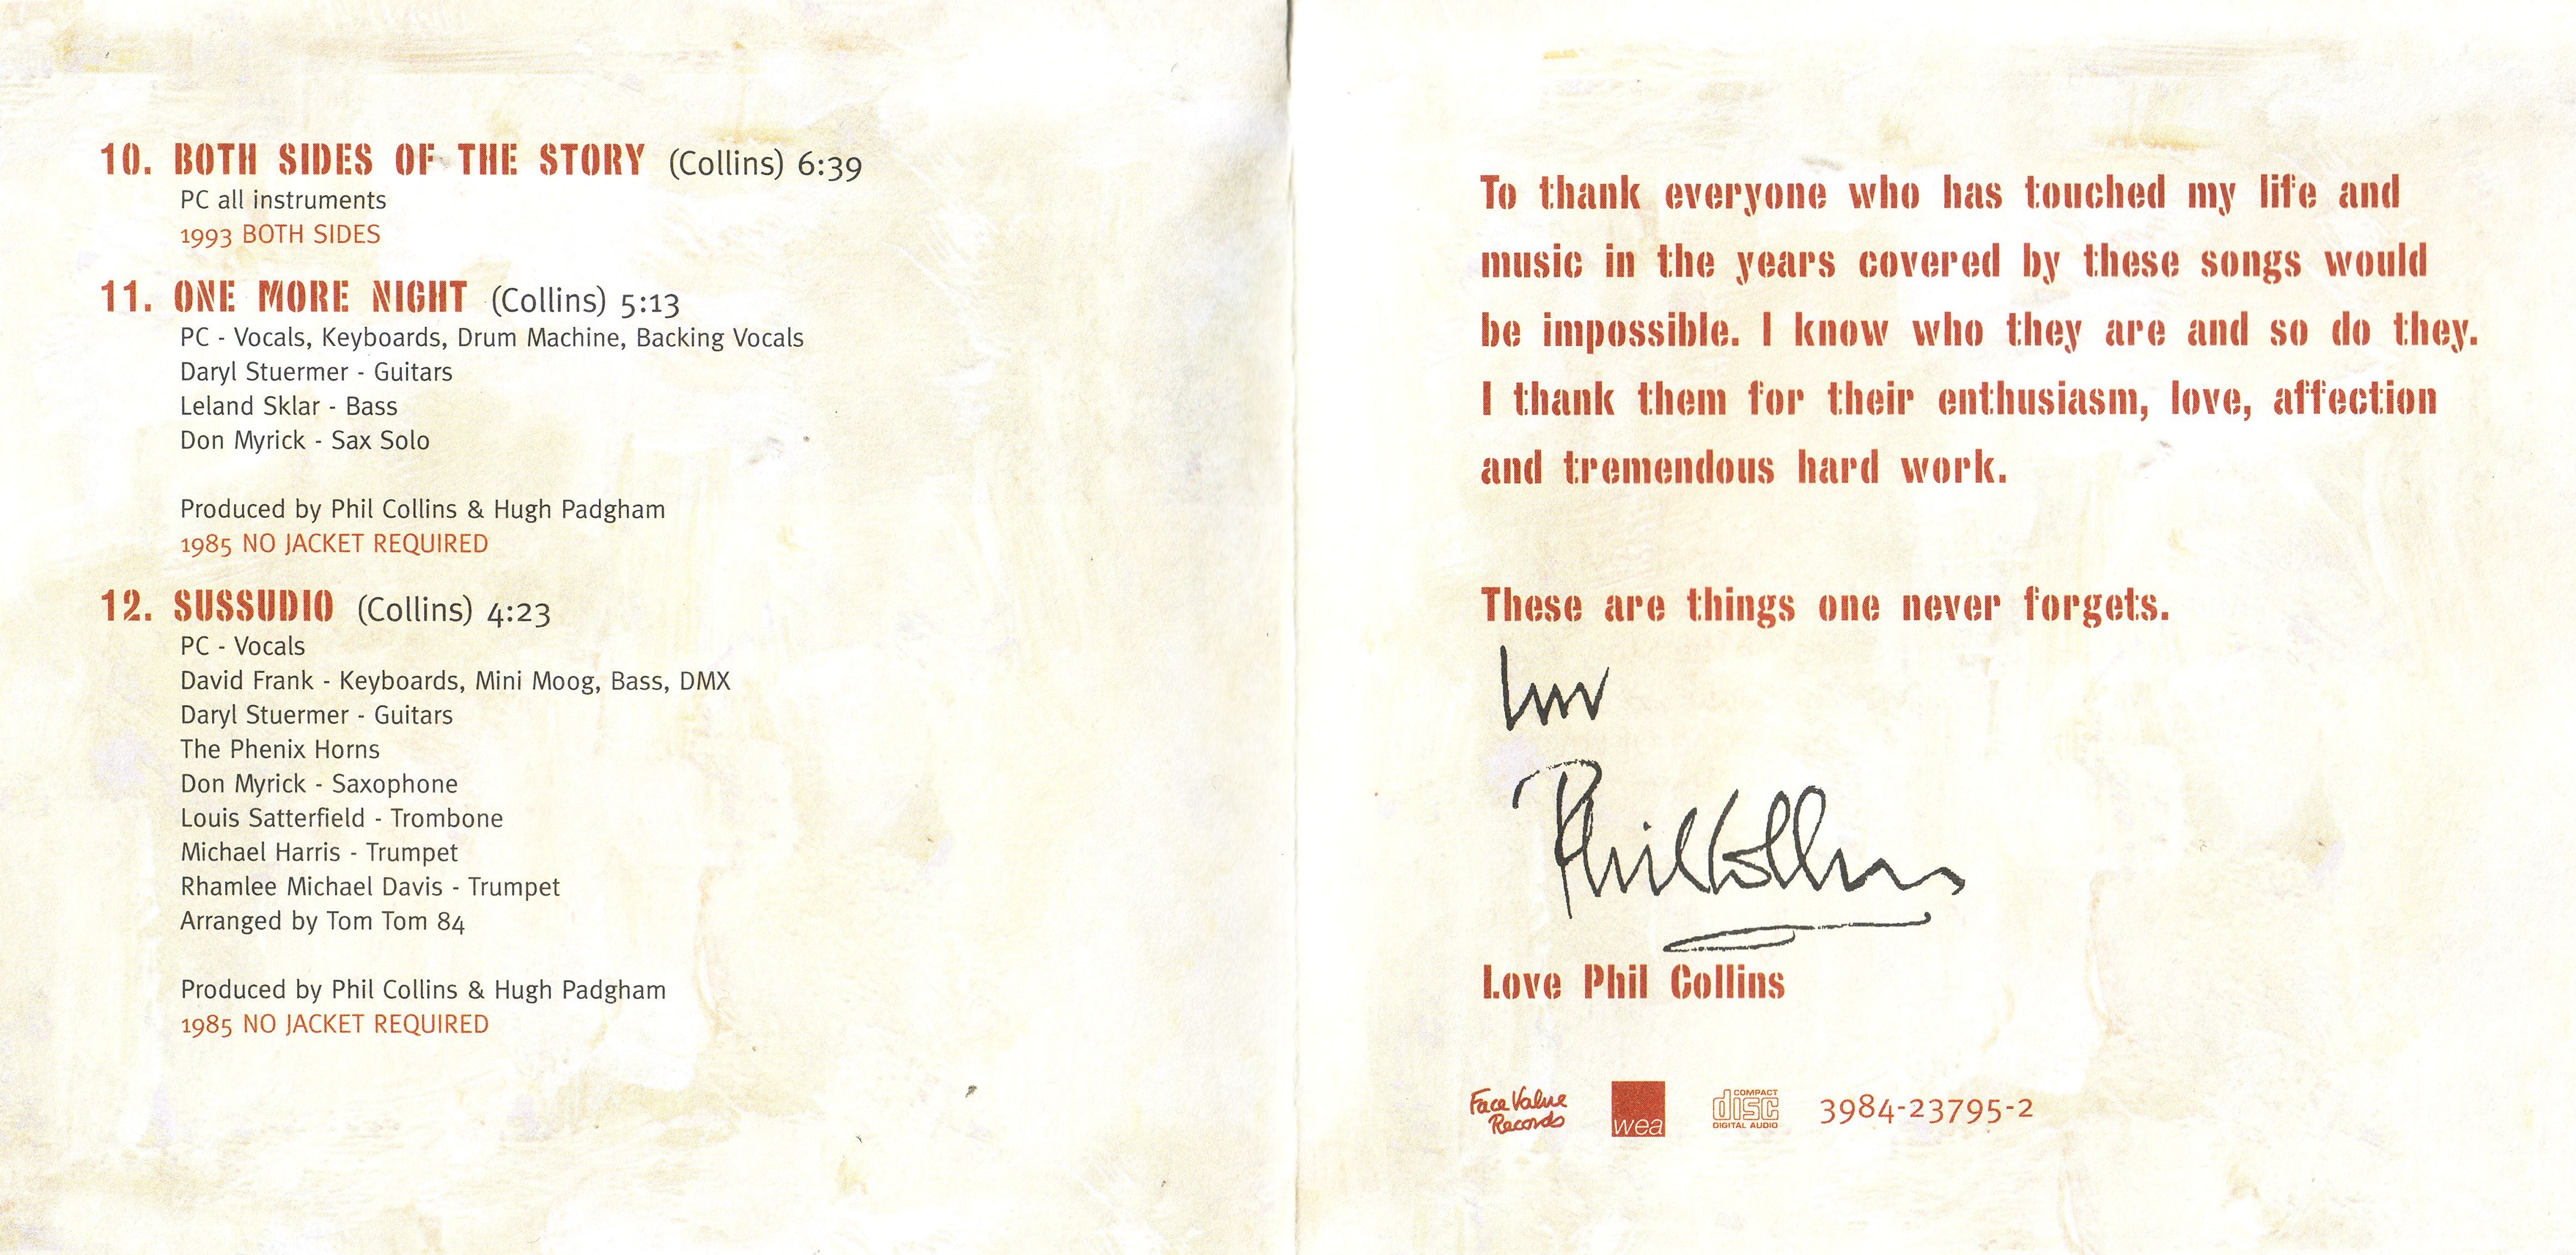 10. BOTH SIDES OF THE STORY (Collins) 6:39
PC all instruments
1993 BOTH SIDES
11. ONE MORE NIGHT (Collins) 5:13
PC - Vocals, Keyboards, Drum Machine, Backing Vocals
Daryl Stuermer - Guitars
Leland Sklar - Bass
Don Myrick - Sax Solo
Produced by Phil Collins & Hugh Padgham
1985 NO JACKET REQUIRED
12. SUSSUDIO (Collins) 4:23
PC - Vocals
David Frank - Keyboards, Mini Moog, Bass, DMX
Daryl Stuermer - Guitars
The Phenix Horns
Don Myrick - Saxophone
Louis Satterfield - Trombone
Michael Harris - Trumpet
Rhamlee Michael Davis - Trumpet
Arranged by Tom Tom 84
Produced by Phil Collins & Hugh Padgham
1985 NO JACKET REQUIRED
To thank everyone who has touched my life and
music in the years covered by these songs would
be impossible. I know who they are and so do they.
I thank them for their enthusiasm, love, affection
and tremendous hard work.
These are things one never forgets.
luv
Phil Collins
Love Phil Collins
Face Value
Records
wea
COMPACT
disc
DIGITAL AUDIO
3984-23795-2